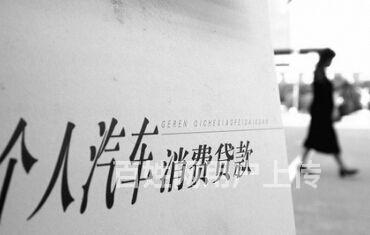 GEREN QICHEXIAOFEIDAIKUAN
个人汽车消费贷款
百姓网用户上传